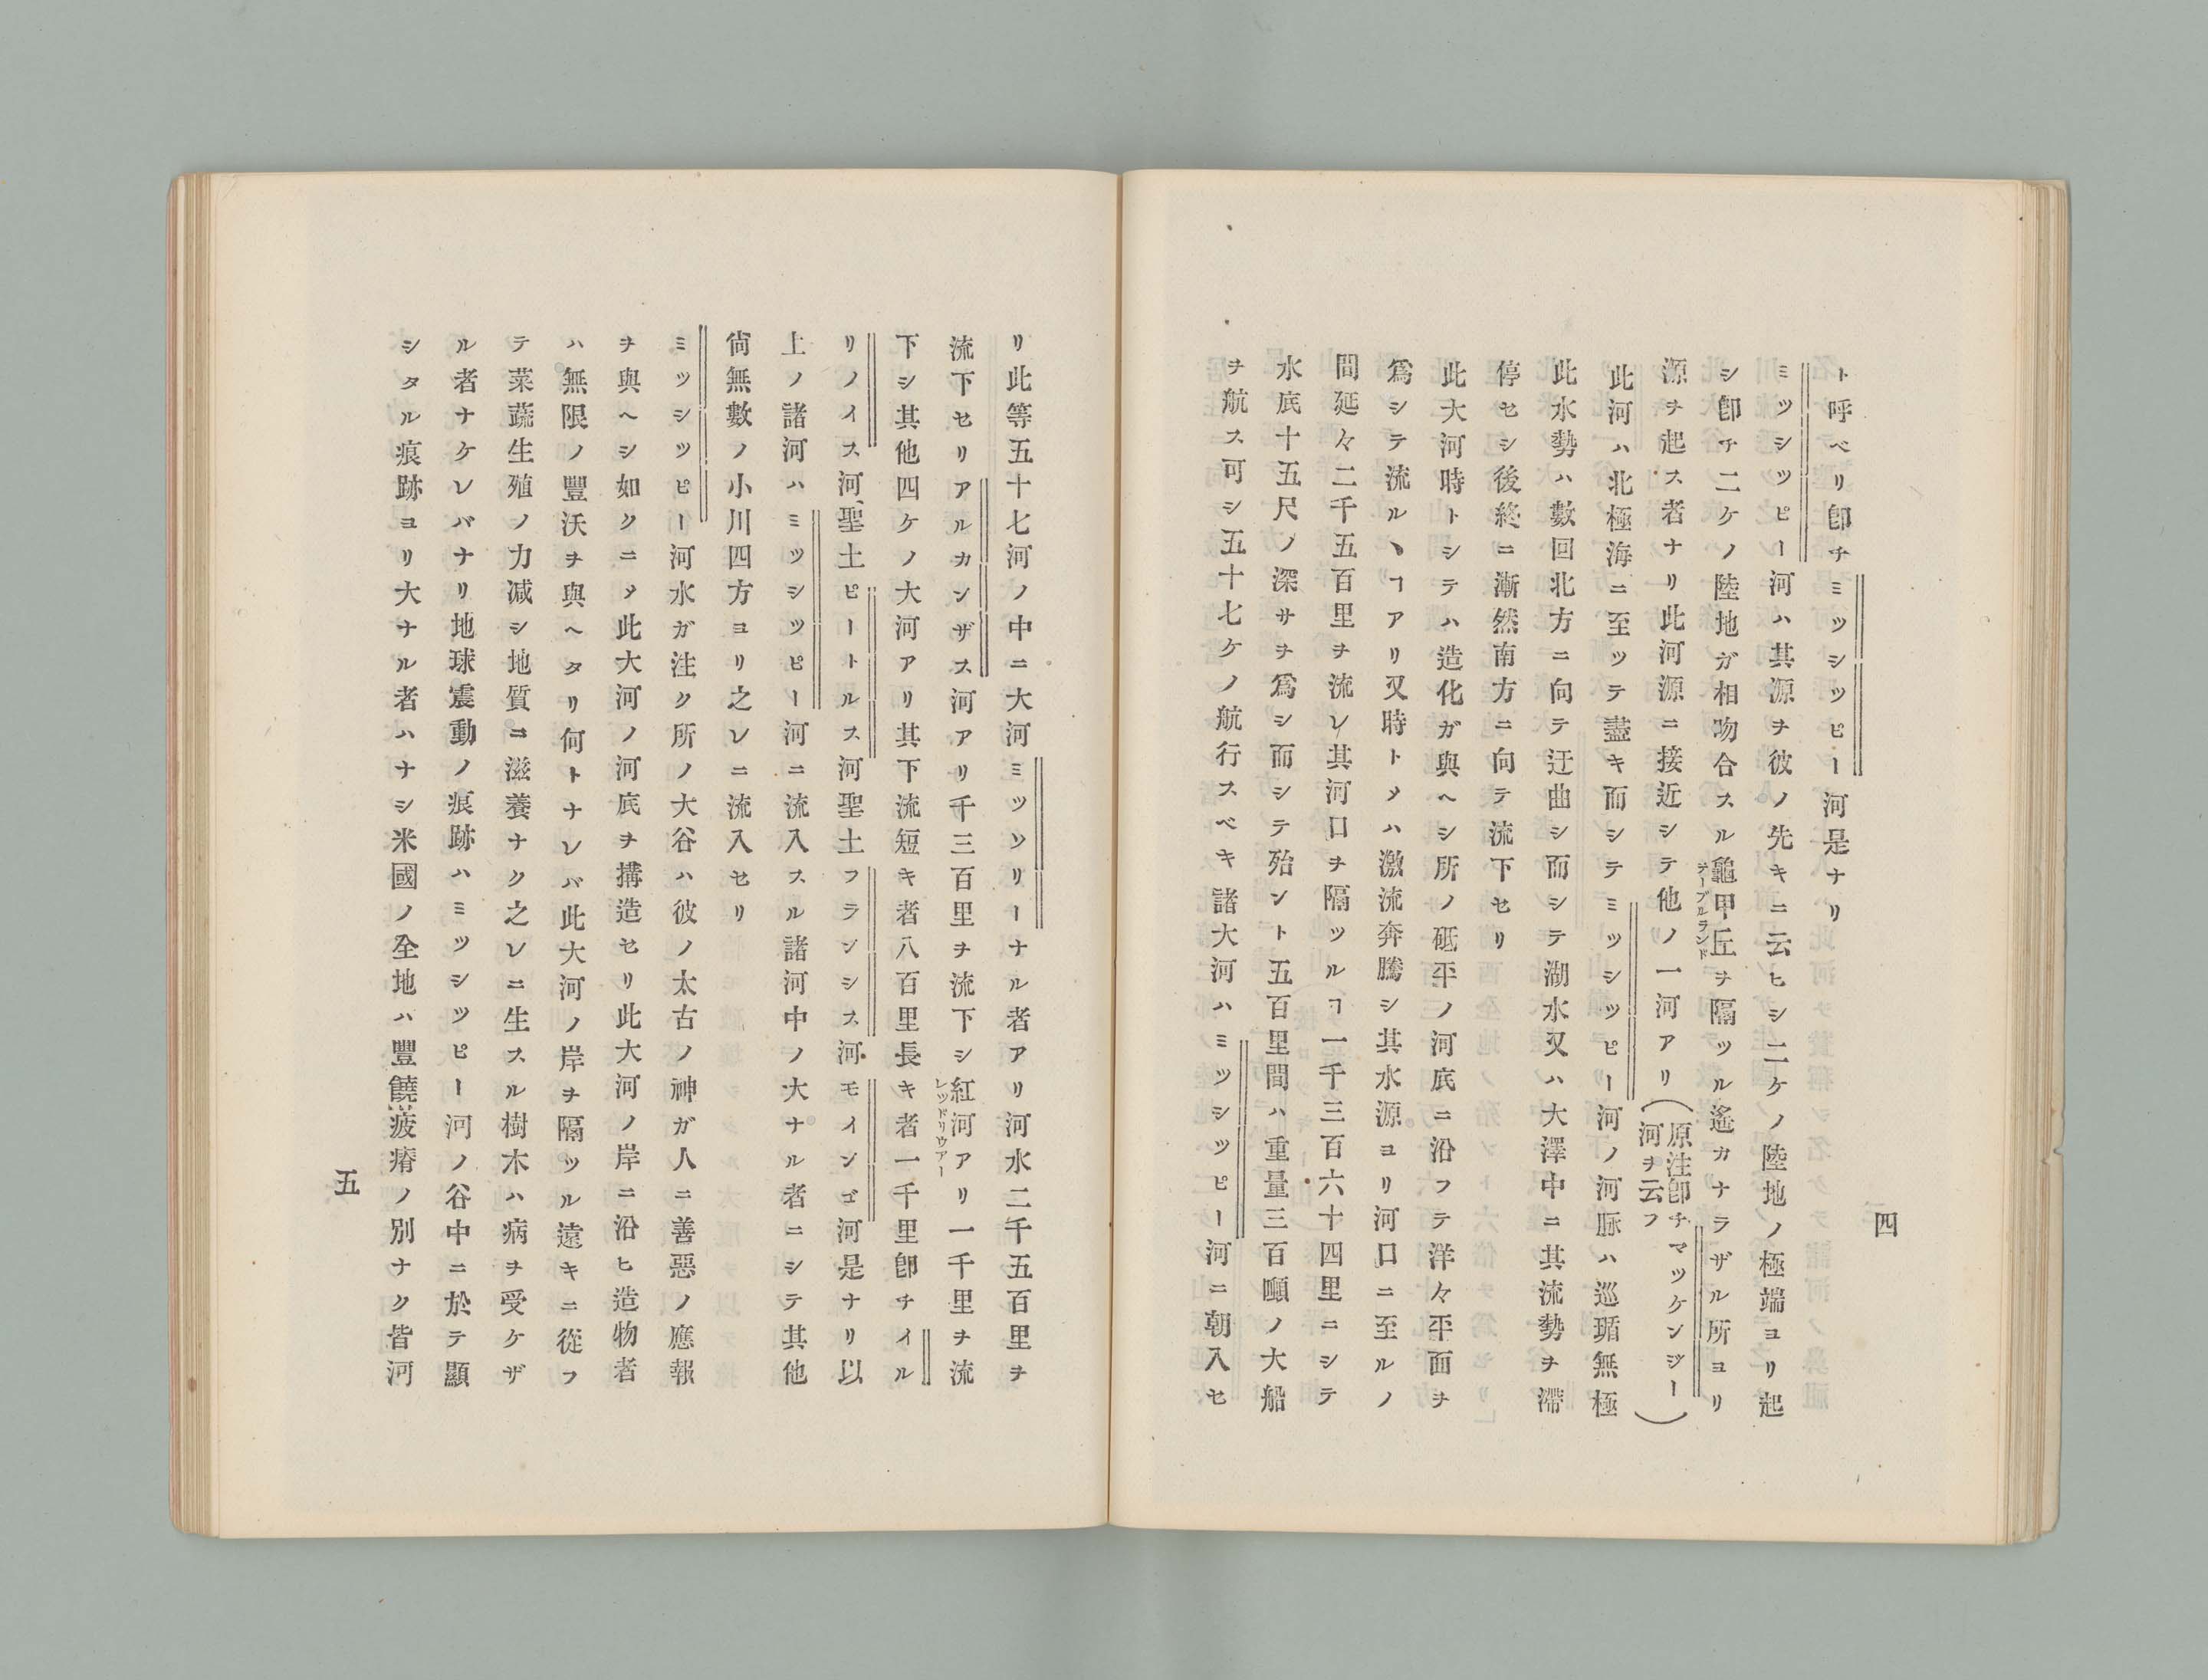 四
ト呼ベリ卽チミツシツピー河是ナリ
ミツシツピー河ハ其源ヲ彼ノ先キニ云ヒシ二ケノ陸地ノ極端ヨリ起
シ卽チ二ケノ陸地ガ相吻合スル龜甲丘ヲ隔ツル遙カナラザル所ヨリ
テーブルランド
源ヲ起ス者ナリ此河源ニ接近シテ他ノ一河アリ(原注卽チマツケンジー
河ヲ云フ)
此河ハ北極海ニ至ツテ盡キ而シテミツシツピー河ノ河脈ハ巡瑙無極
此水勢ハ數回北方ニ向テ迂曲シ而シテ湖水又ハ大澤中ニ其流勢ヲ滯
停セシ後終ニ漸然南方ニ向テ流下セリ
此大河時トシテハ造化ガ與ヘシ所ノ砥平ノ河底ニ沿フテ洋々平面ヲ
爲シテ流ルヽヿアリ又時トメハ激流奔騰シ其水源ヨリ河口ニ至ルノ
間延々二千五百里ヲ流レ其河口ヲ隔ツルヿ一千三百六十四里ニシテ
水底十五尺ノ深サヲ爲シ而シテ殆ント五百里間ハ重量三百噸ノ大船
ヲ航ス可シ五十七ケノ航行スベキ諸大河ハミツシツピー河ニ朝入セ
リ此等五十七河ノ中ニ大河ミツソリーナル者アリ河水二千五百里ヲ
流下セリアルカンザス河アリ千三百里ヲ流下シ紅河アリ一千里ヲ流
レツドリウアー
下シ其他四ケノ大河アリ其下流短キ者八百里長キ者一千里卽チイル
リノイス河、聖土ピートルス河聖土フランシス河モインゴ河是ナリ以
上ノ諸河ハミツシツピー河ニ流入スル諸河中ノ大ナル者ニシテ其他
尙無數ノ小川四方ヨリ之レニ流入セリ
ミツシツピー河水ガ注ク所ノ大谷ハ彼ノ太古ノ神ガ人ニ善惡ノ應報
ヲ與ヘシ如クニメ此大河ノ河底ヲ搆造セリ此大河ノ岸ニ沿ヒ造物者
ハ無限ノ豐沃ヲ與ヘタリ何トナレバ此大河ノ岸ヲ隔ツル遠キニ從フ
テ菜蔬生殖ノ力减シ地質ニ滋養ナク之レニ生スル樹木ハ病ヲ受ケザ
ル者ナケレバナリ地球震動ノ痕跡ハミツシツピー河ノ谷中ニ於テ顯
シタル痕跡ヨリ大ナル者ハナシ米國ノ全地ハ豐饒疲瘠ノ別ナク皆河
五